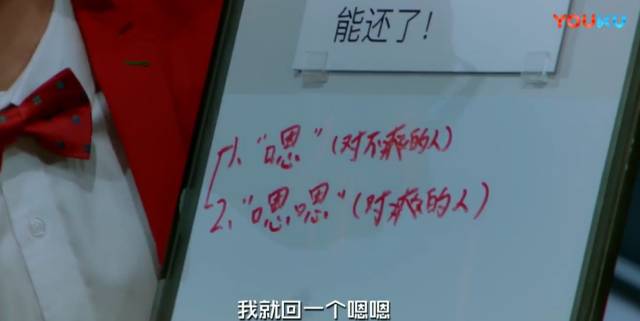 能还了！
YOUKU
1、“嗯”（对不爽的人）
2、“嗯嗯”（对爽的人）
我就回一个嗯嗯